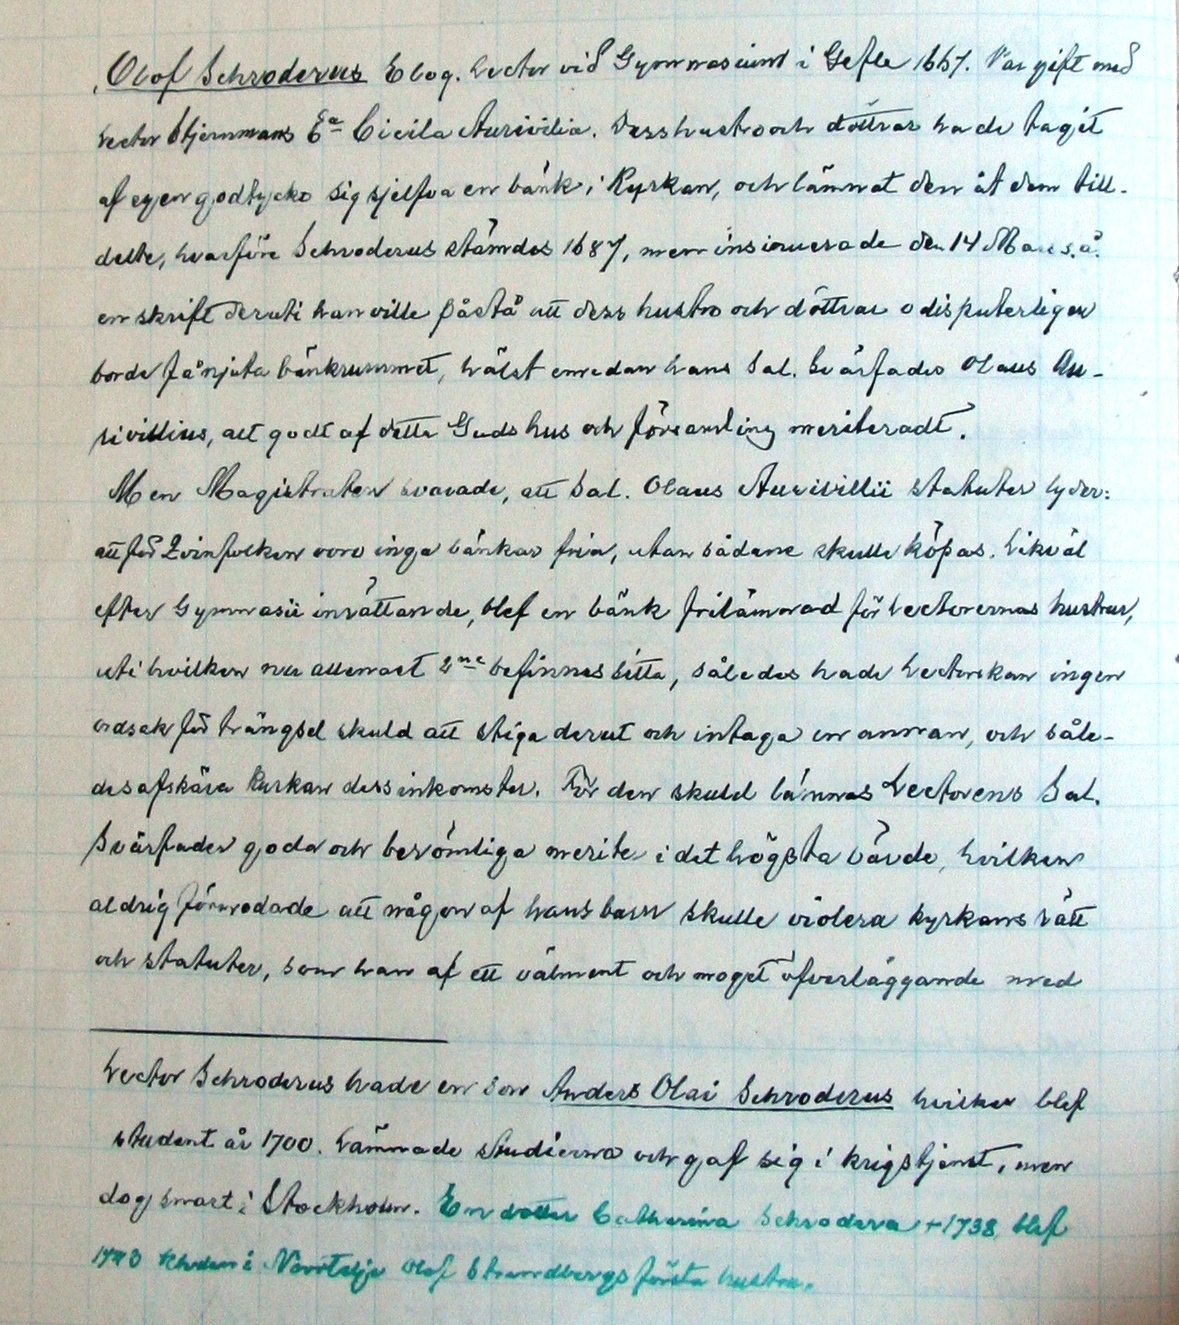 Olof Schroderus Eloq. Lector vid Gymnasium i Gefle 1667. Var gift med
Lector Stjernmans Ea Cicila Aurivilia. Dess hustro och döttrar hade tagit
af egen godtycko sig sjelfva en bänk i Kyrkan, och lämnat den åt dem till-
delte, hvarföre Schroderus stämdes 1687, men insinuerade den 14 Mars s.å.
en skrift deruti han ville påstå att dess hustro och döttrar odisputerligen
borde få njuta bänkrummet, hälst emedan hans Sal. Svärfader Olaus Au-
rivillius, alt godt af detta Guds hus och församling meriteradt.
Men Magistraten svarade, att Sal. Olaus Aurivillii statuter lyder:
att för Qvinfolken voro inga bänkar fria, utan sådane skulle köpas. Likväl
efter Gymnasii inrättande, blef en bänk frilämnad för Lectorernas hustrur,
uti hvilken nu allenast 2ne befinnes sitta, således hade Lectorskan ingen
ordsak för trängsel skuld att stiga derut och intaga en annan, och såle-
des afskära kyrkan dess inkomster. För den skuld lämnas Lectorens Sal.
Svärfader goda och berömliga meriter i det högsta värde, hvilken
aldrig förmodade att någon af hans barn skulle violera kyrkans rätt
och statuter, som han af ett välment och moget öfverläggande med
Lector Schroderus hade en son Anders Olai Schroderus hvilken blef
student år 1700. Lämnade studierna och gaf sig i krigstjenst, men
dog snart i Stockholm. En dotter Catharina Schrodera +1738 blef
i Norrtelje Olof Strandbergs första hustru.